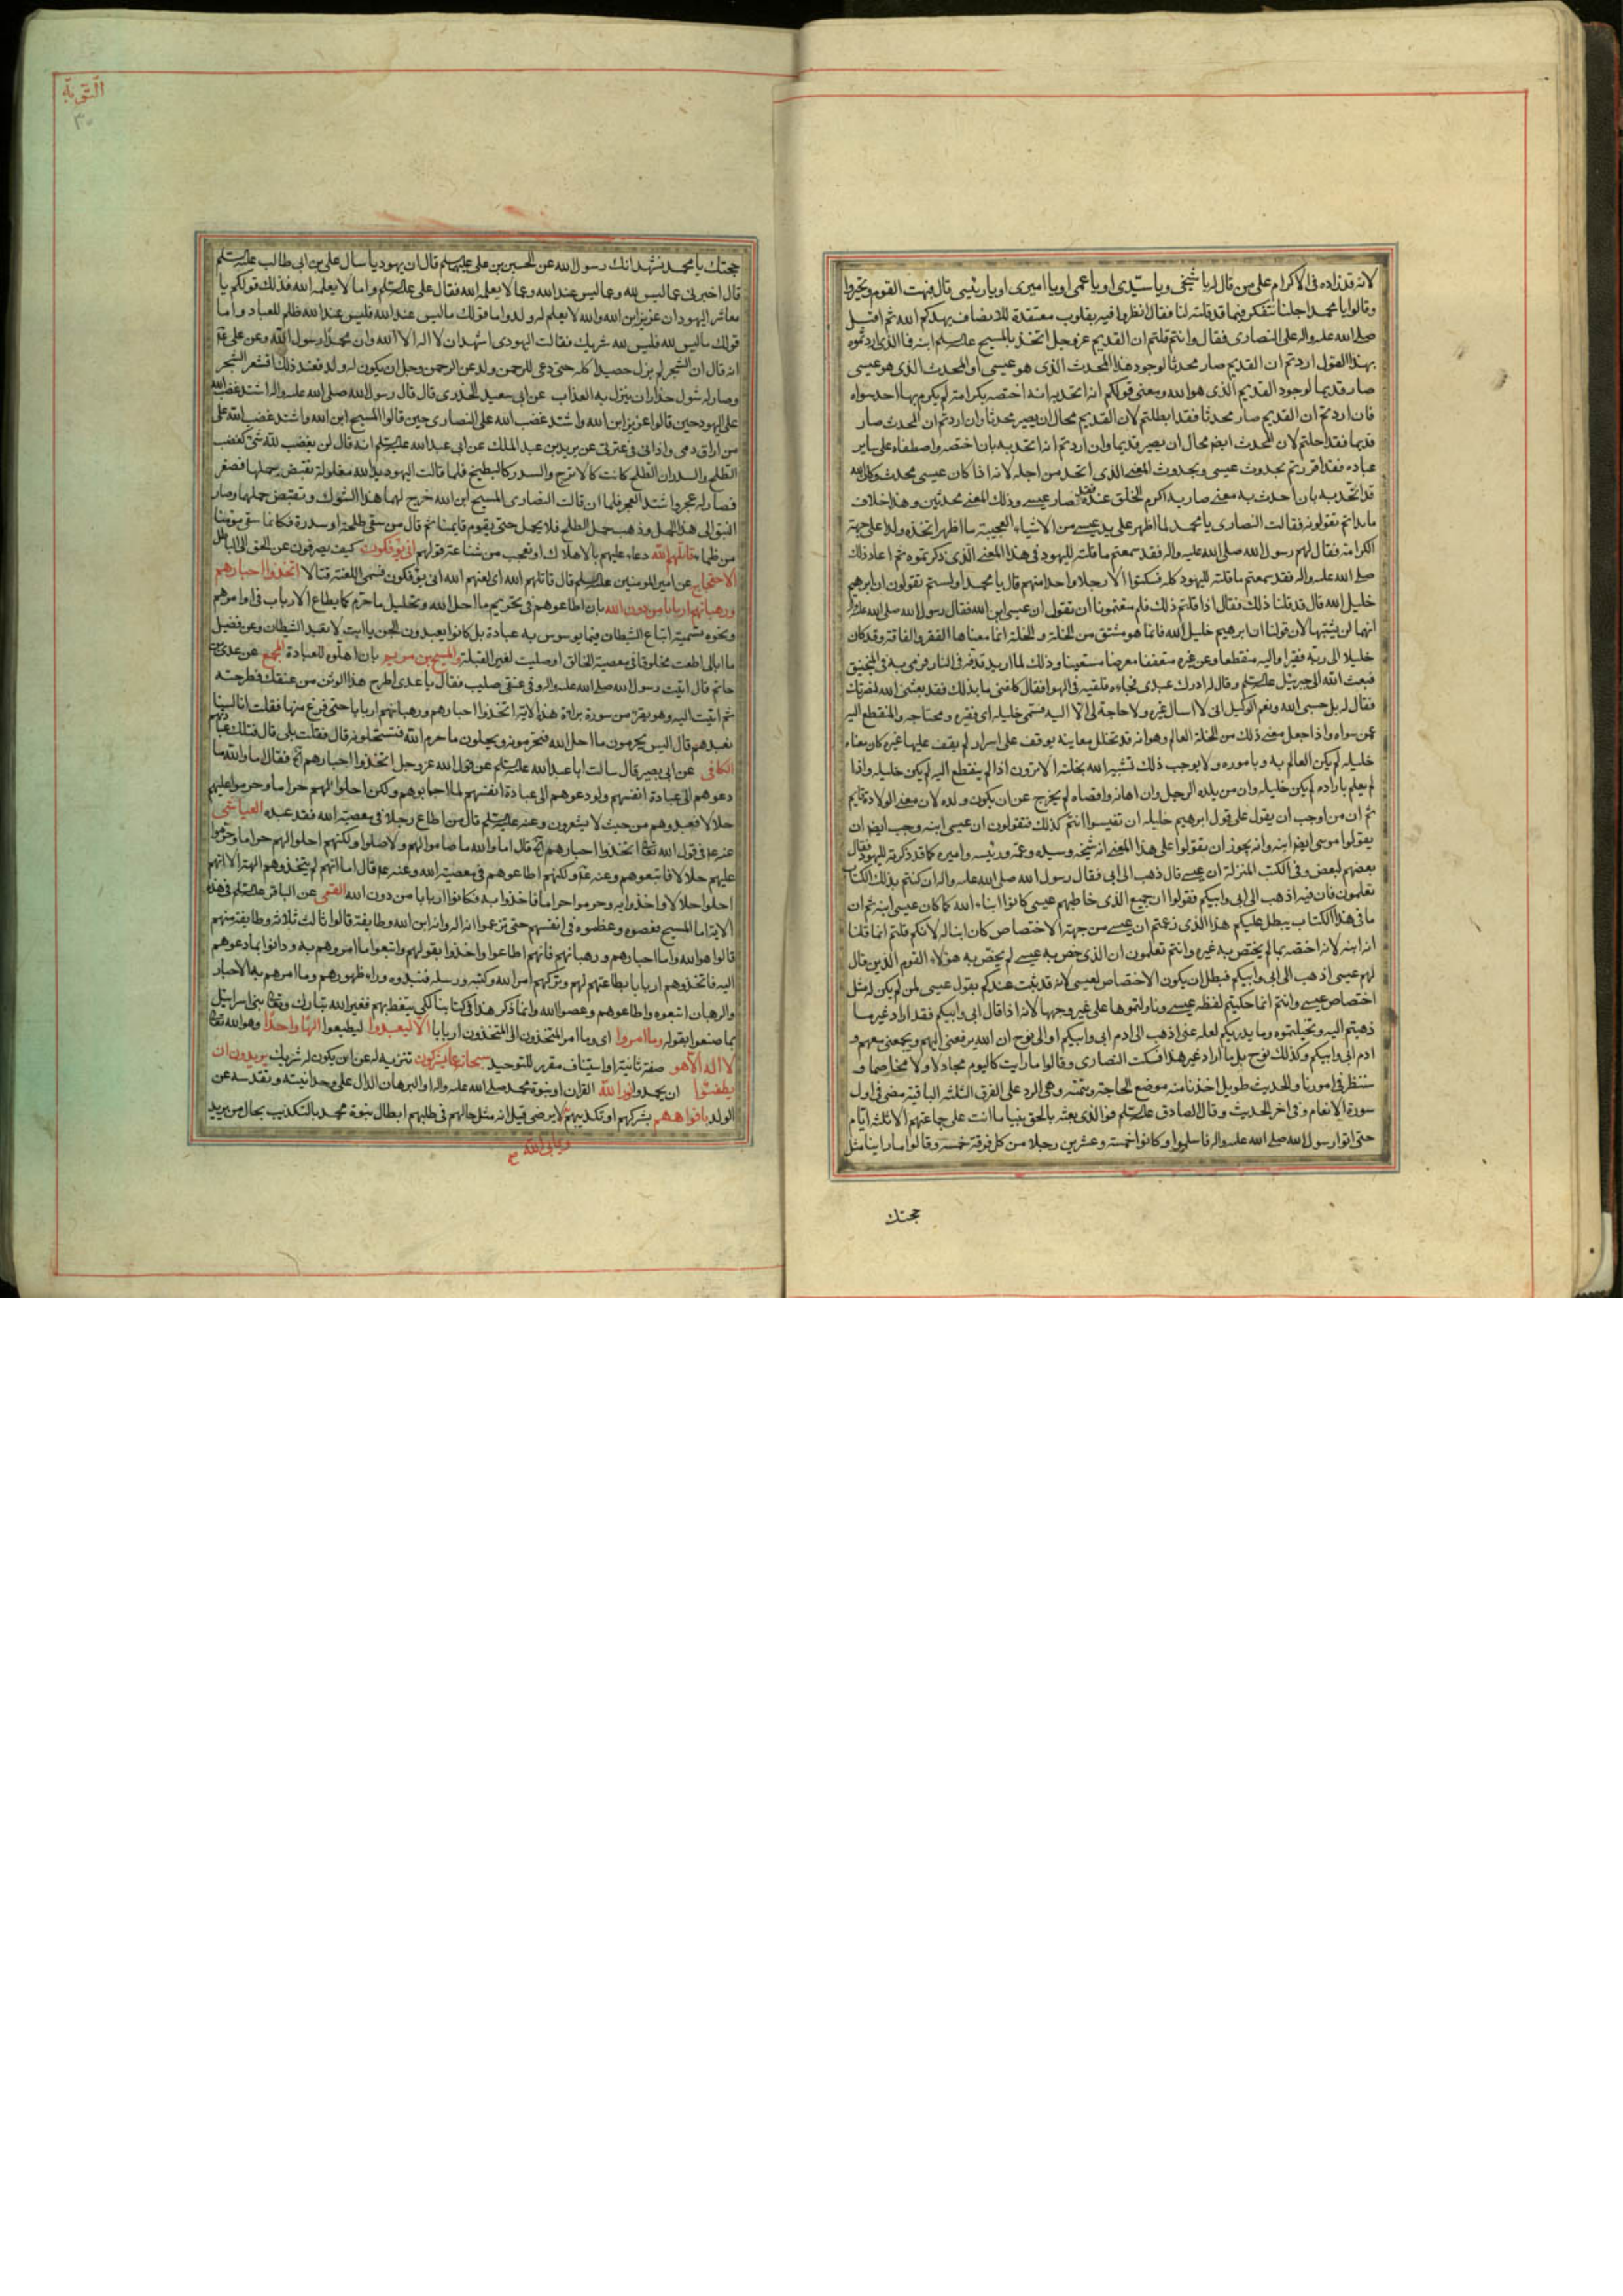 لانه قد زاده في الاكرام على من قال له يا شيخي ويا سيّدي او يا عمي او يا اميري او يا رئيسي قال فبهت القوم وتحيروا
وقالوا يا محمد اجلنا نتفكر فيما قد قلته لنا فقال انظروا فيه بقلوب معتقدة للانصاف يهدكم الله ثم اقبل
صلى الله عليه واله على النصارى فقال وانتم قلتم ان القديم عز وجل اتحد بالمسيح عليه السلم ابنه فما الذي اردتموه
بهذا القول اردتم ان القديم صار محدثا لوجود هذا المحدث الذي هو عيسى او المحدث الذي هو عيسى
صار قديما لوجود القديم الذي هو الله ومعنى قولكم انه اتحد به انه اختصه بكرامة لم يكرم بها احد سواه
فان اردتم ان القديم صار محدثا فقد ابطلتم لان القديم محال ان يصير محدثا وان اردتم ان المحدث صار
قديما فقد احلتم لان المحدث ايضا محال ان يصير قديما وان اردتم انه اتحد به بان اختصه واصطفاه على ساير
عباده فقد اقررتم بحدوث عيسى وبحدوث المعنى الذي اتحد من اجله لانه اذا كان عيسى محدثا وكان الله
قد اتحد به بان احدث به معنى صار به اكرم الخلق عنده فقد صار عيسى وذلك المعنى محدثين وهذا خلاف
ما بداتم تقولونه فقالت النصارى يا محمد لما اظهر على يد عيسى من الاشياء العجيبة ما اظهر اتخذه ولدا على جهة
الكرامة فقال لهم رسول الله صلى الله عليه واله فقد سمعتم ما قلته لليهود في هذا المعنى الذي ذكرتموه ثم اعاد ذلك
صلى الله عليه واله فقد سمعتم ما قلته لليهود كله فسكتوا الا رجلا واحدا منهم قال يا محمد اولستم تقولون ان ابرهيم
خليل الله قال قد قلنا ذلك فقال اذا قلتم ذلك فلم منعتمونا ان نقول ان عيسى ابن الله فقال رسول الله صلى الله عليه واله
انهما لن يشتبها لان قولنا ان ابرهيم خليل الله فانما هو مشتق من الخلة و الخلة انما معناها الفقر والفاقة وقد كان
خليلا الى ربه فقيرا واليه منقطعا وعن غيره متعففا معرضا مستغنيا وذلك لما اريد قذفه في النار فرمى به في المنجنيق
فبعث الله الى جبرئيل عليه السلم وقال له ادرك عبدي فجاءه فلقيه في الهوا فقال كلفني ما بدا لك فقد بعثني الله لنصرتك
فقال له بل حسبي الله ونعم الوكيل اني لا اسال غيره ولا حاجة لي الا اليه فسمى خليله اي فقيره ومحتاجه والمنقطع اليه
عمن سواه واذا جعل معنى ذلك من الخلة العالم وهو انه قد تخلل معانيه ووقف على اسرار لم يقف عليها غيره كان معناه
خليله لم يكن العالم به وباموره ولا يوجب ذلك تشبيه الله بخلقه الا ترون اذا لم ينقطع اليه لم يكن خليله واذا
لم يعلم باراده لم يكن خليله وان من يلده الرجل وان اهانه واقصاه لم يخرج عن ان يكون ولده لان معنى الولادة قايم
ثم ان من اوجب ان يقول على قول ابرهيم خليله ان تقيسوا انتم كذلك فتقولون ان عيسى ابنه وجب ايضا ان
يقولوا موسى ايضا ابنه وانه يجوز ان يقولوا على هذا المعنى انه شيخه وسيده وعمه ورئيسه واميره كما قد ذكرته لليهود فقال
بعضهم لبعض وفي الكتب المنزلة ان عيسى قال اذهب الى ابي فقال رسول الله صلى الله عليه واله ان كنتم بذلك الكتاب
تعلمون فان فيه اذهب الى ابي وابيكم فقولوا ان جميع الذي خاطبهم عيسى كانوا ابناء الله كما كان عيسى ابنه ثم ان
ما في هذا الكتاب يبطل عليكم هذا الذي زعمتم ان عيسى من جهة الاختصاص كان ابنا له لانكم قلتم انما قلنا
انه ابنه لانه اختصه بما لم يختص به غيره وانتم تعلمون ان الذي خص به عيسى لم يختص به هؤلاء القوم الذين قال
لهم عيسى اذهب الى ابي وابيكم فبطل ان يكون الاختصاص لعيسى لانه قد ثبت عندكم بقول عيسى لمن لم يكن له مثل
اختصاص عيسى وانتم انما حكيتم لفظة عيسى وتاولتموها على غير وجهها لانه اذا قال ابي وابيكم فقد اراد غير ما
ذهبتم اليه وتخيلتموه وما يدريكم لعله عنى اذهب الى ادم ابي وابيكم او الى نوح ان الله يرفعني اليهم ويجمعني معهم و
ادم ابي وابيكم وكذلك نوح بل ما اراد غير هذا فسكت النصارى وقالوا ما رايت كاليوم مجادلا ولا مخاصما و
سننظر في امورنا والحديث طويل اخذنا منه موضع الحاجة وتتمته وهي الرد على الفرق الثلثة الباقية مضى في اول
سورة الانعام وفي اخر الحديث وقال الصادق عليه السلم فوالذي بعثه بالحق نبيا ما اتت على جماعتهم الا ثلثة ايام
حتى اتوا رسول الله صلى الله عليه واله فاسلموا وكانوا خمسة وعشرين رجلا من كل فرقة خمسة وقالوا ما راينا مثل
حجتك
التوبة
٣٠
حجتك يا محمد نشهد انك رسول الله عن الحسين بن علي عليهما السلم قال ان يهوديا سال علي بن ابي طالب عليه السلم
قال اخبرني عما ليس لله وعما ليس عند الله وعما لا يعلمه الله فقال علي عليه السلم واما لا يعلمه الله فذلك قولكم يا
معاشر اليهود ان عزيز ابن الله والله لا يعلم له ولدا واما قولك ما ليس عند الله فليس عند الله ظلم للعباد واما
قولك ما ليس لله فليس لله شريك فقالت اليهودي اشهد ان لا اله الا الله وان محمدا رسول الله وعن علي ع
انه قال ان الشجر لم يزل حصيدا كله حتى دعي للرحمن ولد عز الرحمن وجل ان يكون له ولد فعند ذلك اقشعر الشجر
وصار له شوك حذار ان ينزل به العذاب عن ابي سعيد الخدري قال قال رسول الله صلى الله عليه واله اشتد غضب الله
على اليهود حين قالوا عزيز ابن الله واشتد غضب الله على النصارى حين قالوا المسيح ابن الله واشتد غضب الله على
من اراق دمي واذاني في عترتي عن يزيد بن عبد الملك عن ابي عبد الله عليه السلم انه قال لن يغضب لله شئ كغضب
الطلح والسدر ان الطلح كانت كالاترج والسدر كالبطيخ فلما قالت اليهود يد الله مغلولة نقبض حملها فصغر
فصار له عجم واشتد العجم فلما ان قالت النصارى المسيح ابن الله خرج لهما هذا الشوك ونقبض حملها وصار
النبق الى هذا الحمل وذهب حمل الطلح فلا يحمل حتى يقوم قايمنا ثم قال من سقى طلحة او سدرة فكانما سقى مؤمنا
من ظما قاتلهم الله دعاء عليهم بالاهلاك او تعجب من شناعة قولهم انى يؤفكون كيف يصرفون عن الحق الى الباطل
الاحتجاج عن امير المومنين عليه السلم قال قاتلهم الله اي لعنهم الله انى يؤفكون فسمى اللعنة قتالا اتخذوا احبارهم
ورهبانهم اربابا من دون الله بان اطاعوهم في تحريم ما احل الله وتحليل ما حرم كما يطاع الارباب في اوامرهم
ونحوه تسمية اتباع الشيطان فيما يوسوس به عبادة بل كانوا يعبدون الجن يا ابت لا تعبد الشيطان وعن فضيل
ما ابالي اطعت مخلوقا في معصية الخالق او صليت لغير القبلة والمسيح بن مريم بان اهلوه للعبادة المجمع عن عدي بن
حاتم قال اتيت رسول الله صلى الله عليه واله وفي عنقي صليب فقال يا عدي اطرح هذا الوثن من عنقك فطرحته
ثم اتيت اليه وهو يقرء من سورة براءة هذا الاية اتخذوا احبارهم ورهبانهم اربابا حتى فرغ منها فقلت انا لسنا
نعبدهم قال اليس يحرمون ما احل الله فتحرمونه ويحلون ما حرم الله فتستحلونه قال فقلت بلى قال فتلك عبادتهم
الكافي عن ابي بصير قال سالت ابا عبد الله عليه السلم عن قول الله عز وجل اتخذوا احبارهم الخ فقال اما والله ما
دعوهم الى عبادة انفسهم ولو دعوهم الى عبادة انفسهم لما اجابوهم ولكن احلوا لهم حراما وحرموا عليهم
حلالا فعبدوهم من حيث لا يشعرون وعنه عليه السلم قال من اطاع رجلا في معصية الله فقد عبده العياشي
عنه ع في قول الله تعالى اتخذوا احبارهم الخ قال اما والله ما صاموا لهم ولا صلوا ولكنهم احلوا لهم حراما وحرموا
عليهم حلالا فاتبعوهم وعنه ع ولكنهم اطاعوهم في معصية الله وعنه ع قال اما انهم لم يتخذوهم الهة الا انهم
احلوا حلالا واخذوا به وحرموا حراما فاخذوا به فكانوا اربابا من دون الله القمي عن الباقر عليه السلم في هذه
الاية اما المسيح فعصوه وعظموه في انفسهم حتى زعموا انه اله وانه ابن الله وطايفة قالوا ثالث ثلاثة وطايفة منهم
قالوا هو الله واما احبارهم ورهبانهم فانهم اطاعوا واخذوا بقولهم واتبعوا ما امروهم به ودانوا بما دعوهم
اليه فاتخذوهم اربابا بطاعتهم لهم وتركهم امر الله وكتبه ورسله فنبذوه وراء ظهورهم وما امرهم به الاحبار
والرهبان اتبعوه واطاعوهم وعصوا الله وانما ذكر هذا في كتابنا لكي يتعظ بهم فعير الله تبارك وتعالى بني اسرائيل
بما صنعوا بقوله وما امروا اي وما امر المتخذون او المتخذون اربابا الا ليعبدوا ليطيعوا الها واحدا وهو الله تعالى
لا اله الا هو صفة ثانية او استيناف مقرر للتوحيد سبحانه عما يشركون تنزيه له عن ان يكون له شريك يريدون ان
يطفئوا ان يخمدوا نور الله القران او نبوة محمد صلى الله عليه واله او البرهان الدال على وحدانيته وتقدسه عن
الولد بافواههم بشركهم او تكذيبهم قيل انه مثل حالهم في طلبهم ابطال نبوة محمد بالتكذيب بحال من يريد
ويابى الله